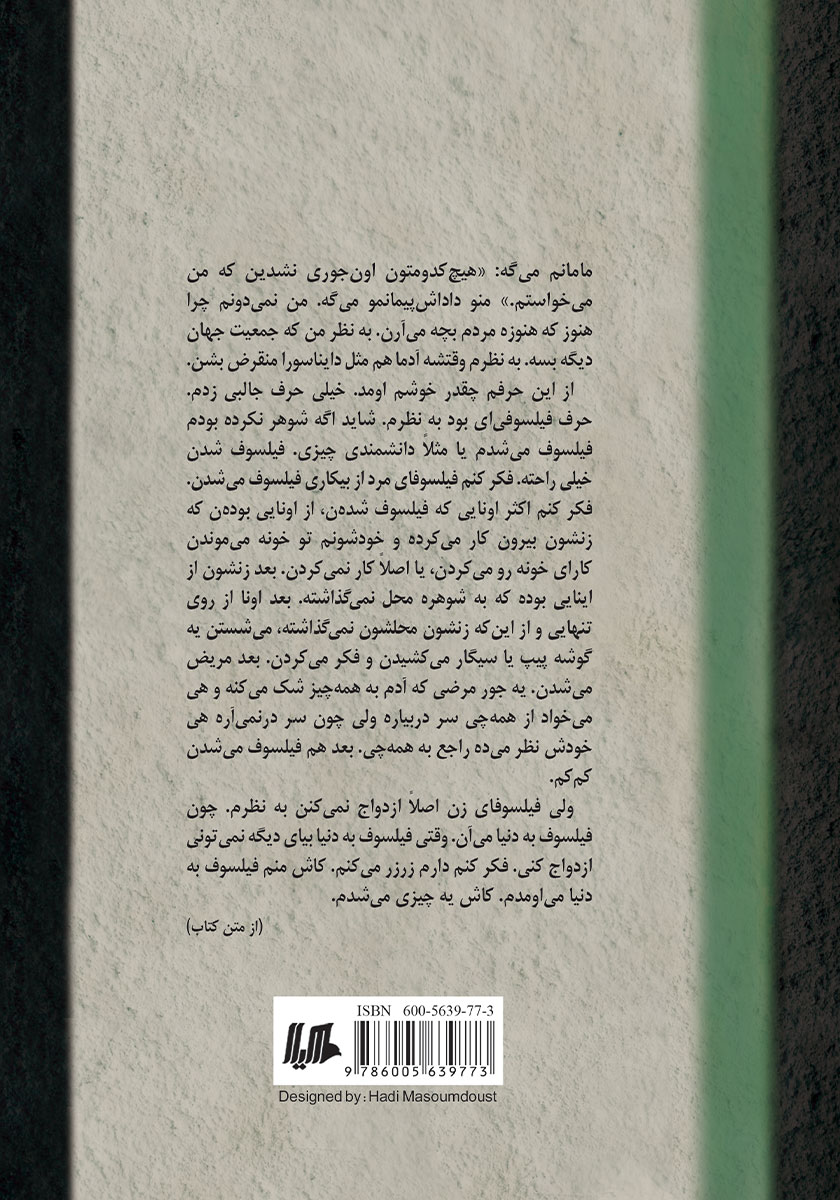 مامانم می‌گه: «هیچ‌کدومتون اون‌جوری نشدین که من
می‌خواستم.» منو داداش‌پیمانمو می‌گه. من نمی‌دونم چرا
هنوز که هنوزه مردم بچه می‌آرن. به نظر من که جمعیت جهان
دیگه بسه. به نظرم وقتشه آدما هم مثل دایناسورا منقرض بشن.
از این حرفم چقدر خوشم اومد. خیلی حرف جالبی زدم.
حرف فیلسوفی‌ای بود به نظرم. شاید اگه شوهر نکرده بودم
فیلسوف می‌شدم یا مثلاً دانشمندی چیزی. فیلسوف شدن
خیلی راحته. فکر کنم فیلسوفای مرد از بیکاری فیلسوف می‌شدن.
فکر کنم اکثر اونایی که فیلسوف شده‌ن، از اونایی بوده‌ن که
زنشون بیرون کار می‌کرده و خودشونم تو خونه می‌موندن
کارای خونه رو می‌کردن، یا اصلاً کار نمی‌کردن. بعد زنشون از
اینایی بوده که به شوهره محل نمی‌گذاشته. بعد اونا از روی
تنهایی و از این‌که زنشون محلشون نمی‌گذاشته، می‌شستن یه
گوشه پیپ یا سیگار می‌کشیدن و فکر می‌کردن. بعد مریض
می‌شدن. یه جور مرضی که آدم به همه‌چیز شک می‌کنه و هی
می‌خواد از همه‌چی سر دربیاره ولی چون سر درنمی‌آره هی
خودش نظر می‌ده راجع به همه‌چی. بعد هم فیلسوف می‌شدن
کم‌کم.
ولی فیلسوفای زن اصلاً ازدواج نمی‌کنن به نظرم. چون
فیلسوف به دنیا می‌آن. وقتی فیلسوف به دنیا بیای دیگه نمی‌تونی
ازدواج کنی. فکر کنم دارم زرزر می‌کنم. کاش منم فیلسوف به
دنیا می‌اومدم. کاش یه چیزی می‌شدم.
(از متن کتاب)
ISBN 600-5639-77-3
هیلا
9 786005 639773
Designed by: Hadi Masoumdoust